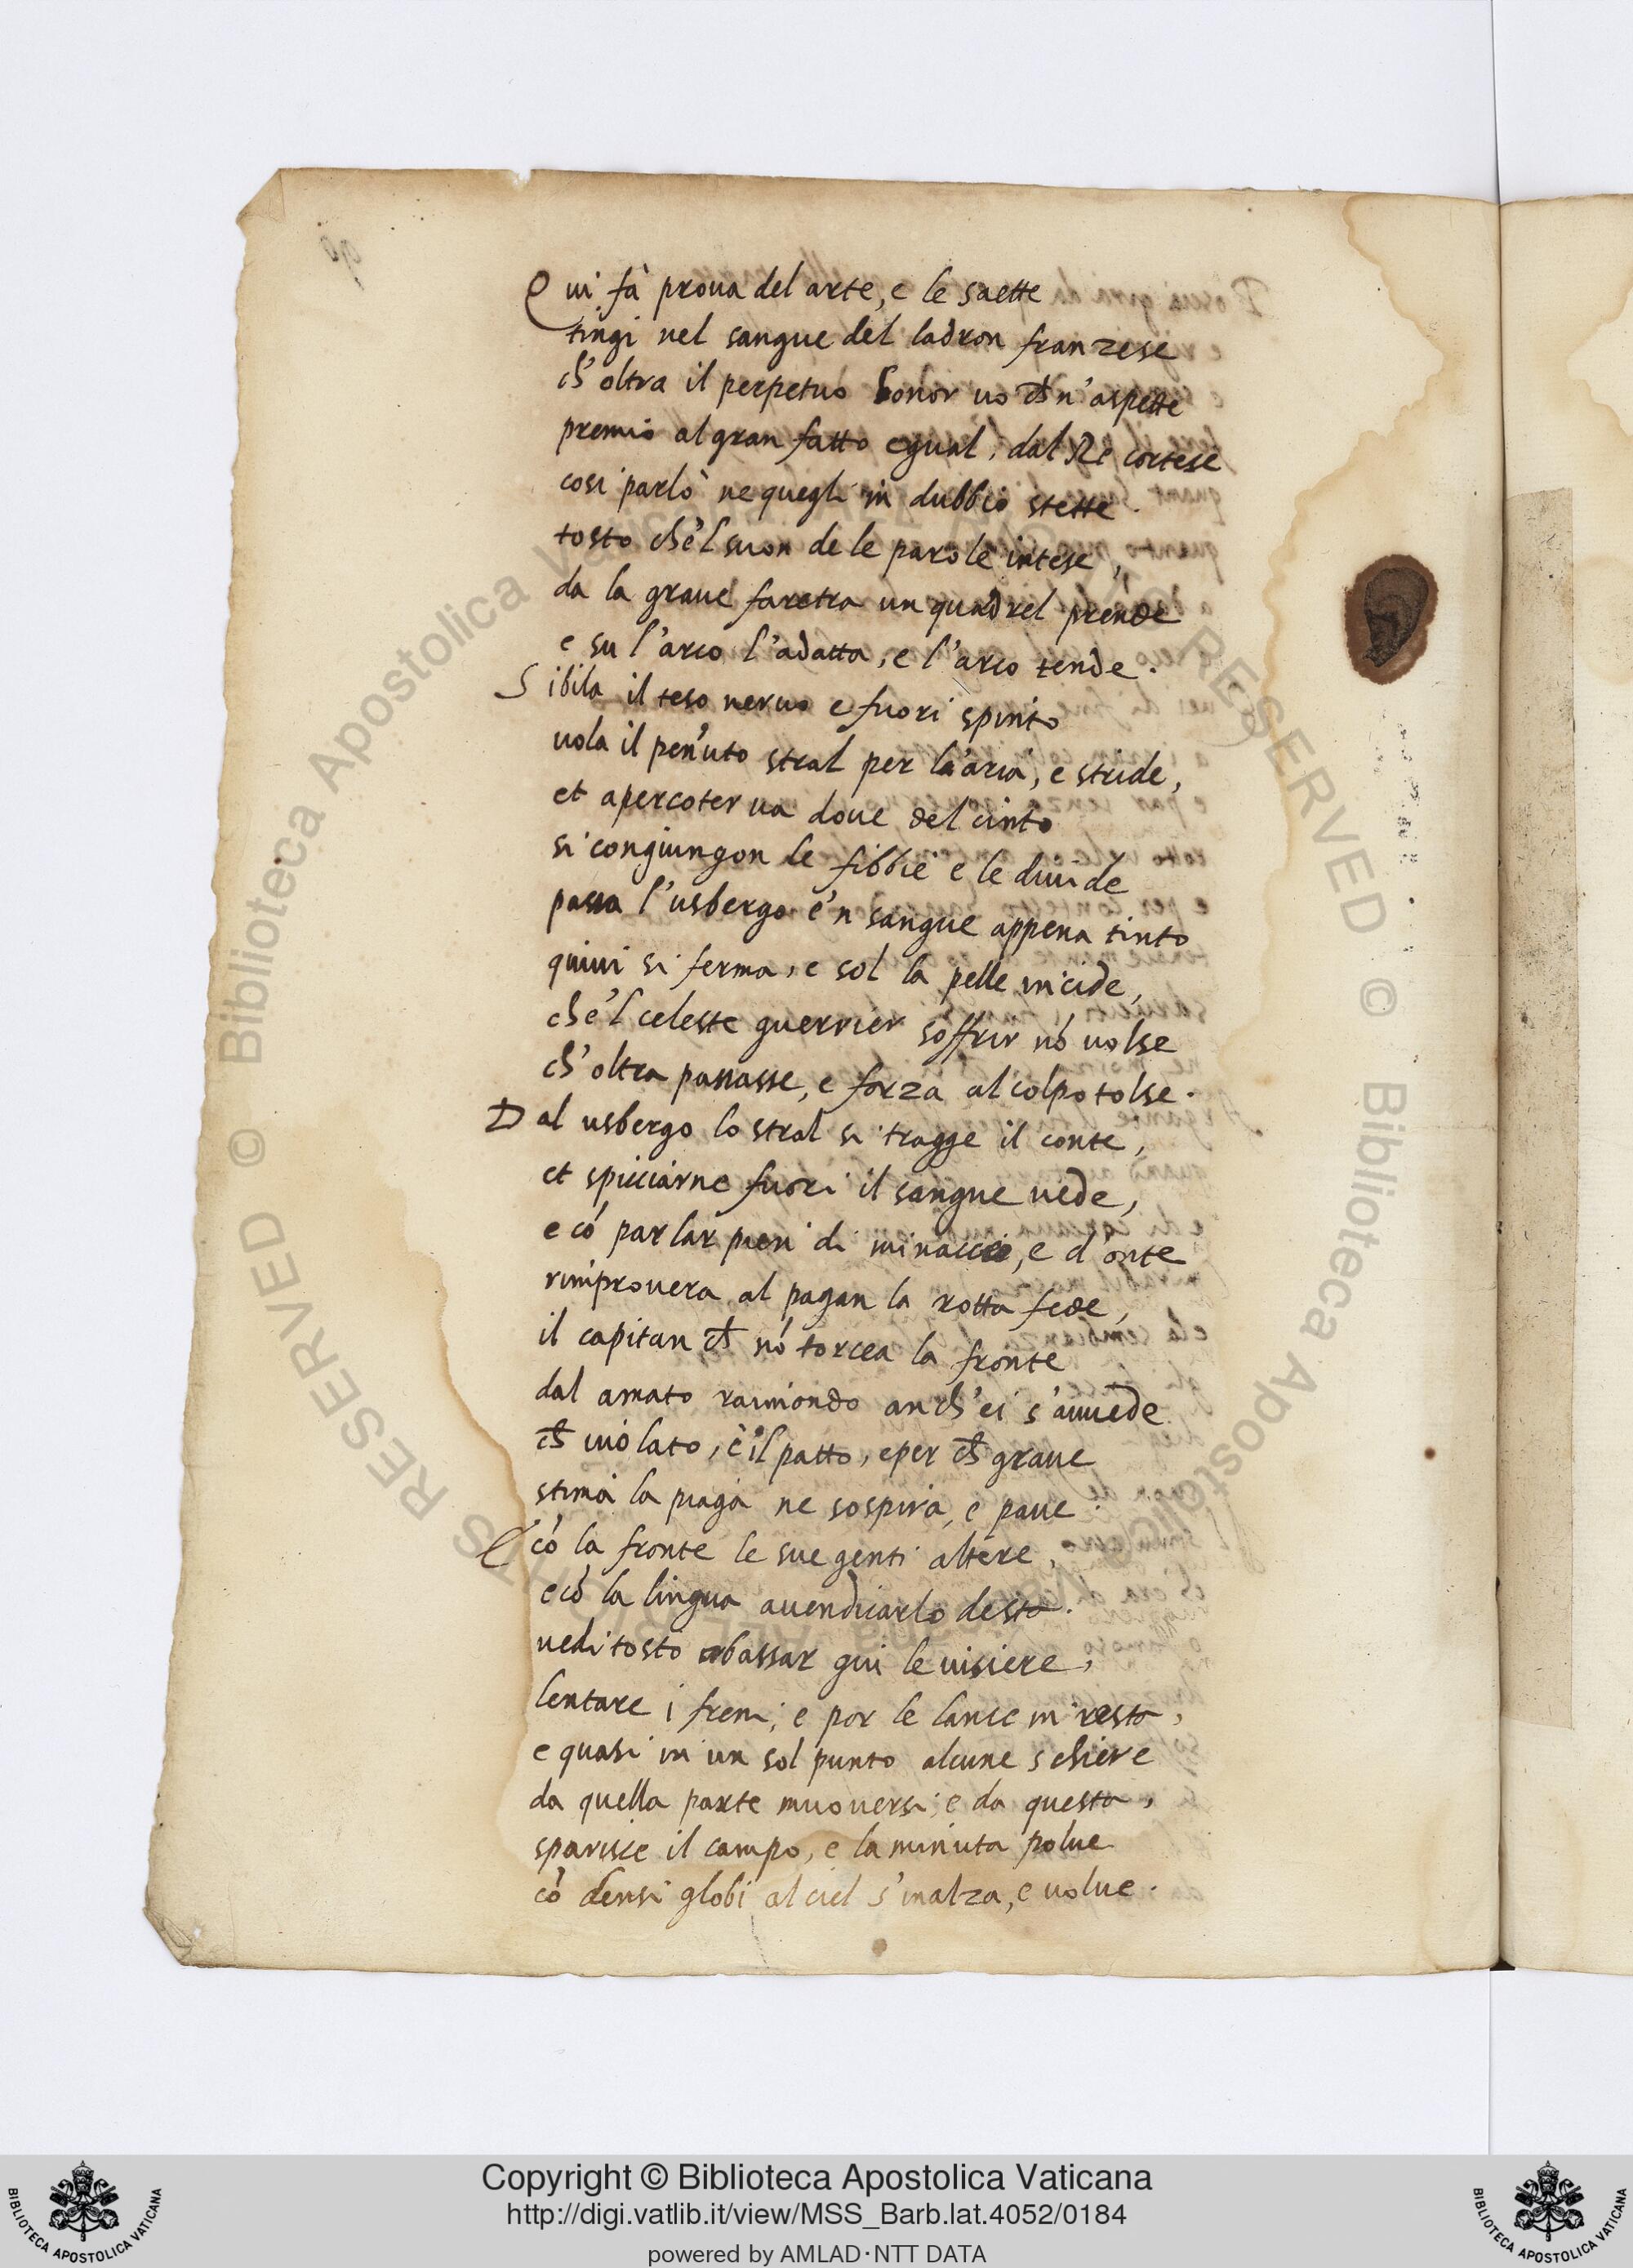 Qui fà proua del arte, e le saette
tingi nel sangue del ladron franzese
ch'oltra il perpetuo honor uò ch̃ n'aspette
premio al gran fatto egual, dal Rè cortese
cosi parlò ne quegli in dubbio stette.
tosto che'l suon de le parole intese,
da la graue faretra un quadrel prende
e su l'arco l'adatta, e l'arco tende.
Sibila il teso neruo e fuori spinto
uola il pen̄uto stral per la'aria, e stride,
et apercoter ua doue del cinto
si congiungon le fibbie e le diuide
passa l'usbergo e'n sangue appena tinto
quiui si ferma, e sol la pelle incide,
che'l celeste guerrier soffrir nõ uolse
ch'oltra passasse, e forza al colpo tolse.
Dal usbergo lo stral si tragge il conte,
et spicciarne fuori il sangue uede,
e cõ parlar pien di minaccie, e d'onte
rimprouera al pagan la rotta fede,
il capitan ch̃ nõ torcea la fronte
dal amato raimondo anch'ei s'auuede
ch̃ uiolato, è il patto, e per ch̃ graue
stima la piaga ne sospira, e paue.
E cõ la fronte le sue genti altere,
e cõ la lingua auendicarlo desta.
uedi tosto abassar giu le uisiere,
lentare i freni, e por le lancie in resta,
e quasi in un sol punto alcune schiere
da quella parte muouersi, e da questa,
sparisce il campo, e la minuta polue
cõ densi globi al ciel s'inalza, e uolue.
Copyright © Biblioteca Apostolica Vaticana
http://digi.vatlib.it/view/MSS_Barb.lat.4052/0184
powered by AMLAD·NTT DATA